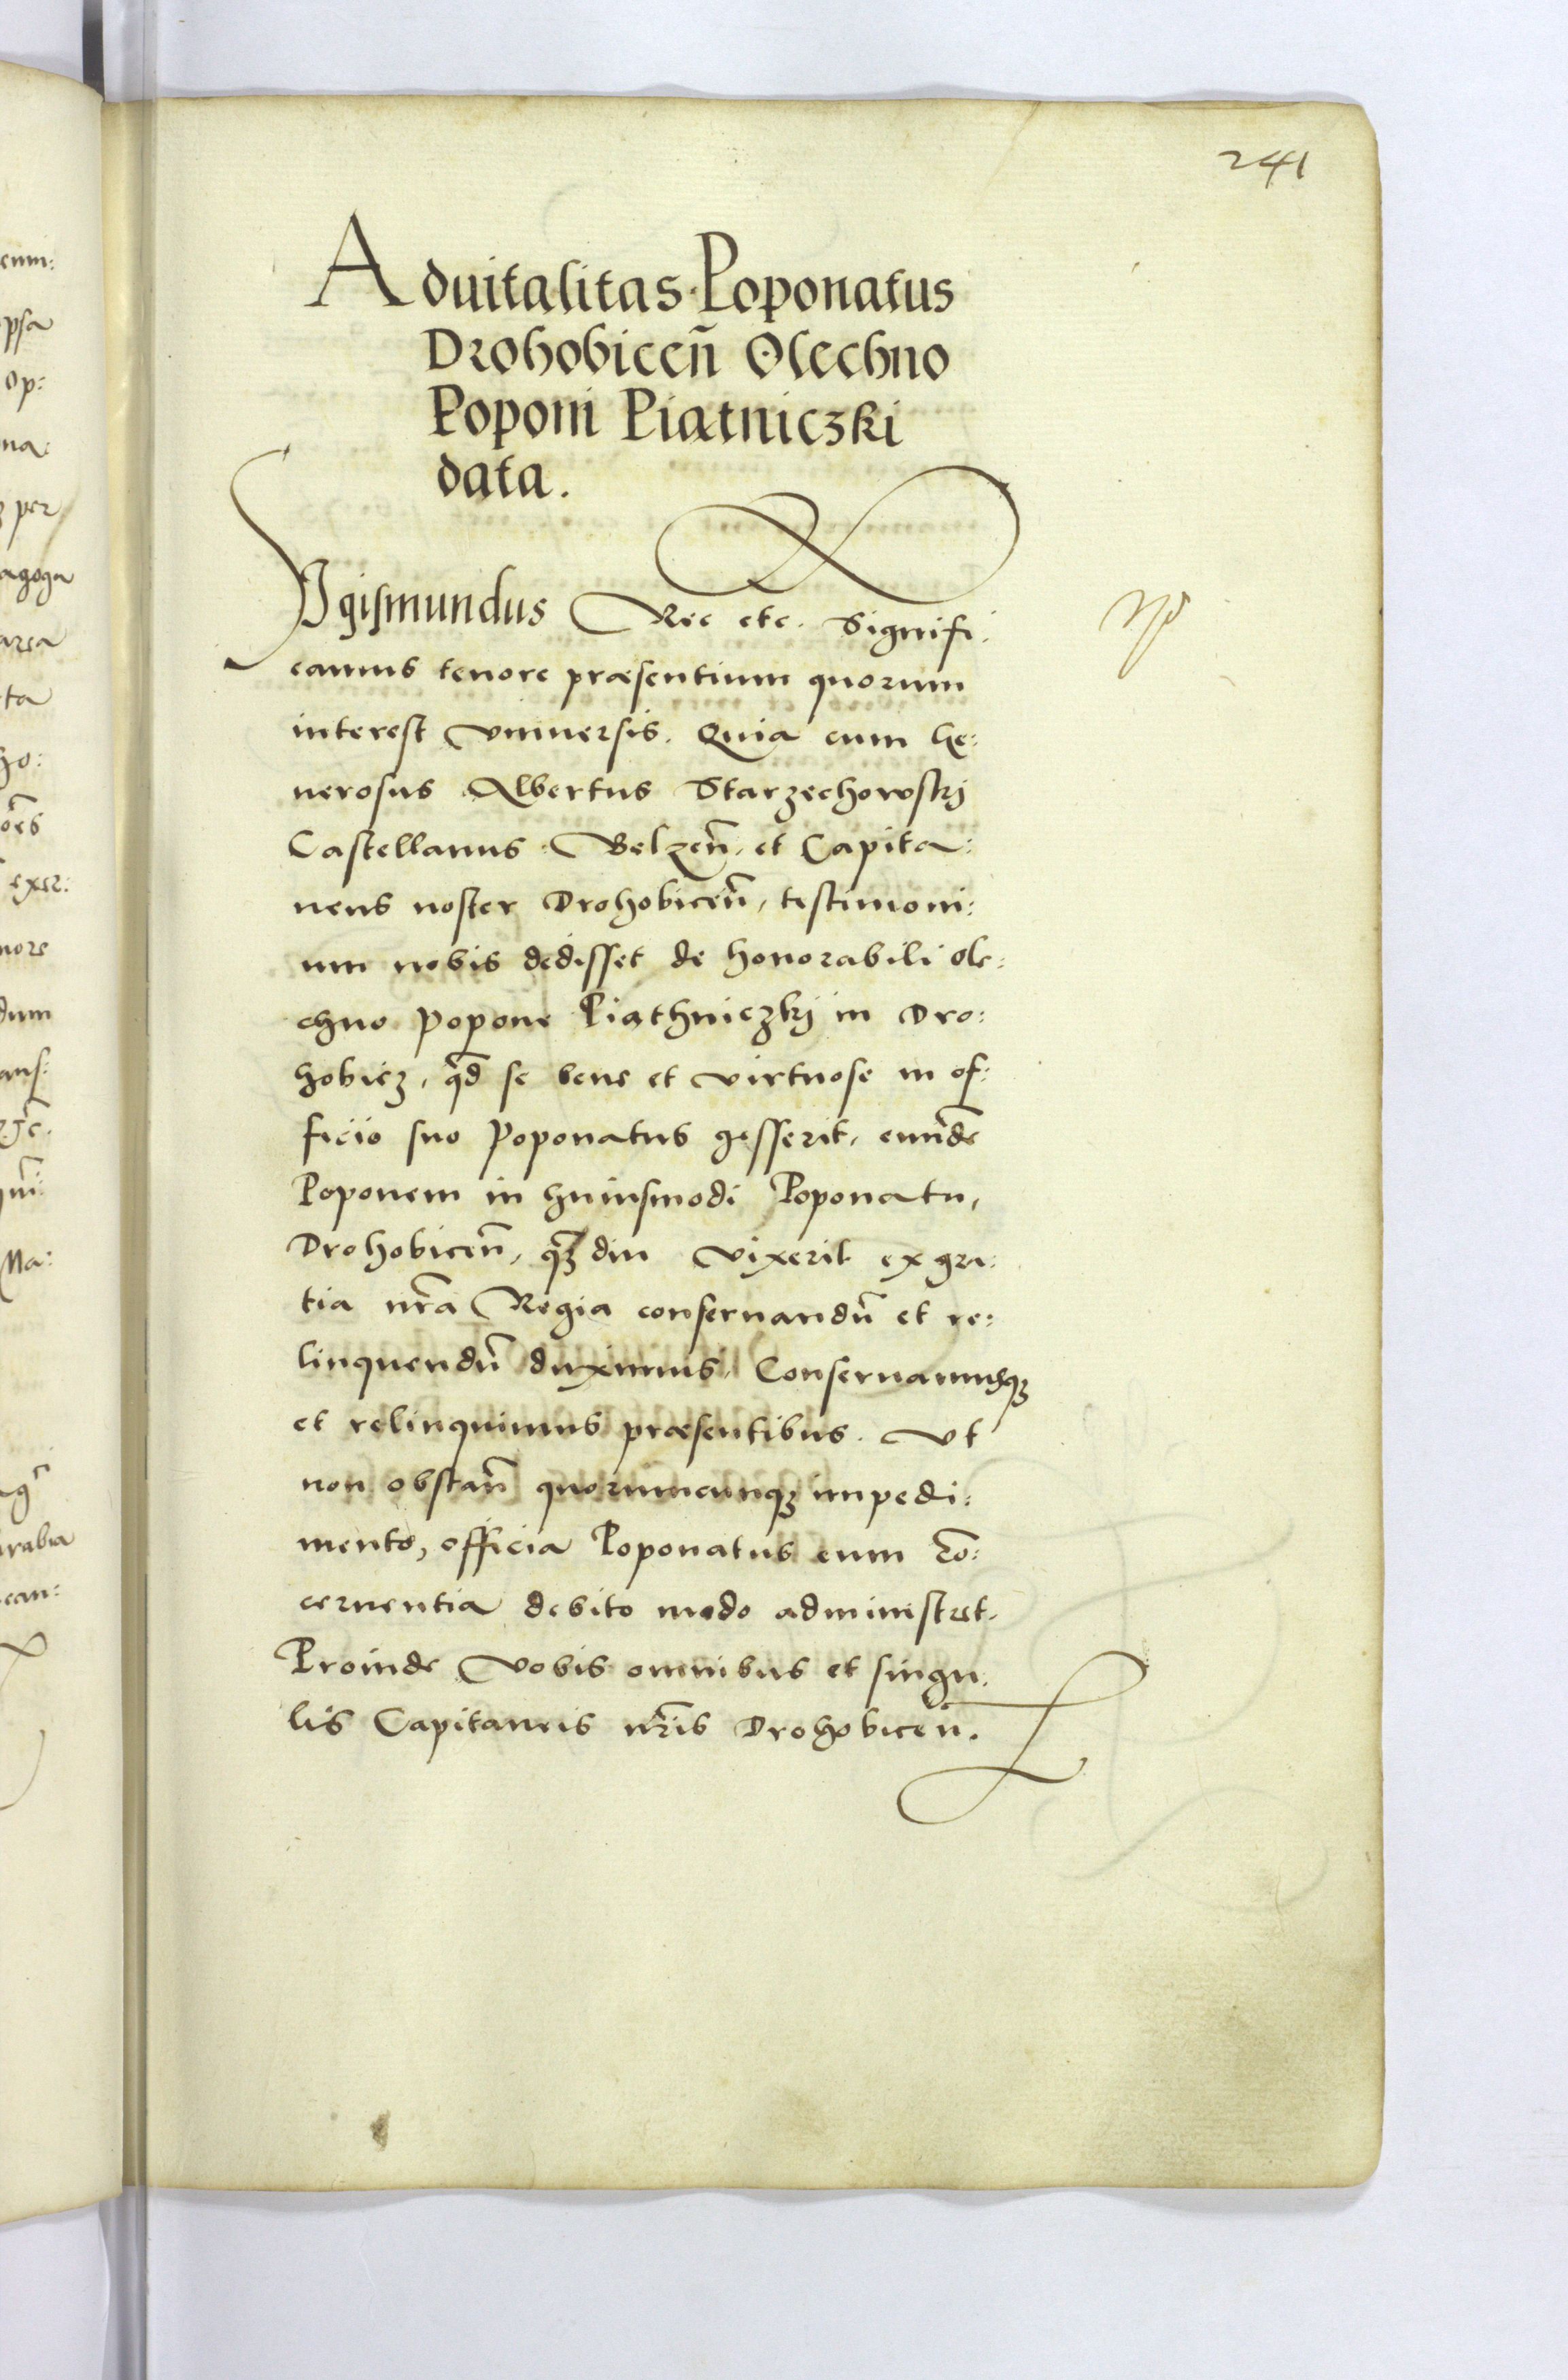 241
Aduitalitas Poponatus
Drohobiceñ Olechno
Poponi Piatniczki
data.
Sigismundus Rex etc. Signifi:
camus tenore præsentium quorum
interest vniuersis. Quia cum Ge:
nerosus Albertus Starzechowskij
Castellanus Belzeñ, et Capita:
neus noster Drohobiceñ, testimoni:
um nobis dedisset de honorabili Ole:
chno Popone Piathniczkij in Dro:
hobicz, qđ se bene et virtuose in of:
ficio suo Poponatus gesserit, eundẽ
Poponem in huiusmodi Poponatu,
Drohobiceñ, qz̃ diu vixerit ex gra:
tia nr̃a Regia conseruandũ et re:
linquendũ duximus. Conseruamusqz
et relinquimus præsentibus. Vt
non obstañ quorumcunqz impedi:
mento, officia Poponatus eum cõ:
cernentia debito modo administret.
Proinde vobis omnibus et singu:
lis Capitaneis nr̃is Drohobiceñ.